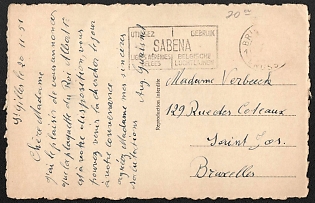 St Gilles le 20 11 51
Chère Madame
J'ai le plaisir de vous annoncer
que la plaquette du Roi Albert I
est à votre disposition, vous
pouvez venir la chercher le jour
à votre convenance
agréez Madame mes sincères
salutations
Aug.
UTILISEZ GEBRUIK
SABENA
LIGNES AERIENNES BELGES BELGISCHE LUCHTLIJNEN
20
Reproduction interdite
Madame Verbeeck
129 Rue des Coteaux
Saint Jos.
Bruxelles